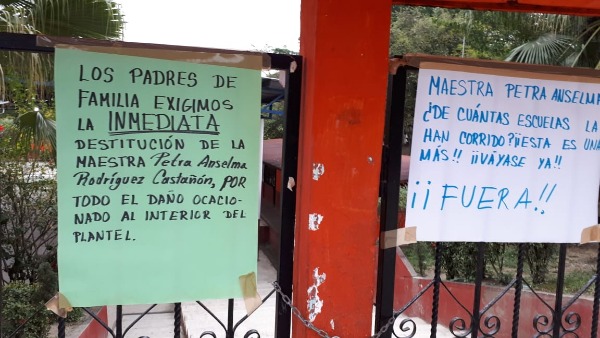 LOS PADRES DE
FAMILIA EXIGIMOS
LA INMEDIATA
DESTITUCIÓN DE LA
MAESTRA Petra Anselma
Rodríguez Castañón, POR
TODO EL DAÑO OCACIO-
NADO AL INTERIOR DEL
PLANTEL.
MAESTRA PETRA ANSELMA
¿DE CUÁNTAS ESCUELAS LA
HAN CORRIDO?¡¡ESTA ES UNA
MÁS!! ¡¡VÁYASE YA!!
¡¡FUERA!!